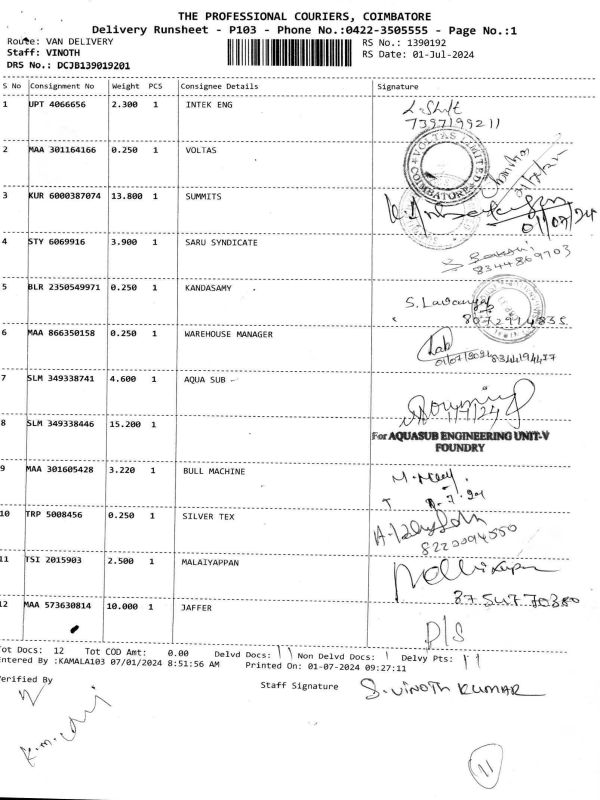 THE PROFESSIONAL COURIERS, COIMBATORE
Delivery Runsheet - P103 - Phone No.:0422-3505555 - Page No.:1
Route: VAN DELIVERY RS No.: 1390192
Staff: VINOTH RS Date: 01-Jul-2024
DRS No.: DCJB139019201
S No Consignment No Weight PCS Consignee Details Signature
1 UPT 4066656 2.300 1 INTEK ENG
7397199211
2 MAA 301164166 0.250 1 VOLTAS
VOLTAS LIMITED
COIMBATORE
3 KUR 6000387074 13.800 1 SUMMITS
01/07/24
4 STY 6069916 3.900 1 SARU SYNDICATE
8344869703
5 BLR 2350549971 0.250 1 KANDASAMY
S. Lavanya
8072914835
6 MAA 866350158 0.250 1 WAREHOUSE MANAGER
01/07/2024 8344194477
7 SLM 349338741 4.600 1 AQUA SUB -
1/7/24
8 SLM 349338446 15.200 1
For AQUASUB ENGINEERING UNIT-V
FOUNDRY
9 MAA 301605428 3.220 1 BULL MACHINE
10 TRP 5008456 0.250 1 SILVER TEX
8220094550
11 TSI 2015903 2.500 1 MALAIYAPPAN
12 MAA 573630814 10.000 1 JAFFER
P/S
Tot Docs: 12 Tot COD Amt: 0.00 Delvd Docs: 11 Non Delvd Docs: 1 Delvy Pts: 11
Entered By :KAMALA103 07/01/2024 8:51:56 AM Printed On: 01-07-2024 09:27:11
Verified By Staff Signature S. VINOTH KUMAR
11